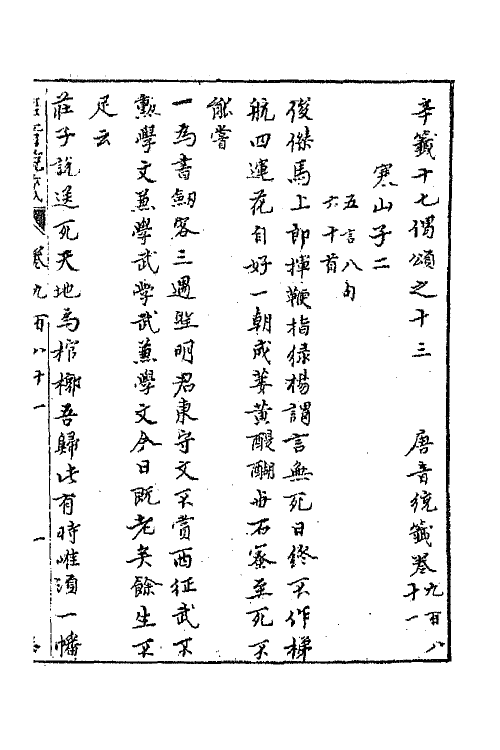 辛籤十七偈頌之十三　唐音統籤卷九百八十一
寒山子二
五言八句
六十首
俊傑馬上郎揮鞭指緑楊謂言無死日終不作梯
航四運花自好一朝成萎黃醍醐與石蜜至死不
能嘗
一為書劍客三遇聖明君東守文不賞西征武不
勳學文兼學武學武兼學文今日既老矣餘生不
足云
莊子說送死天地為棺槨吾歸此有時唯須一幡
卷九百八十一　一